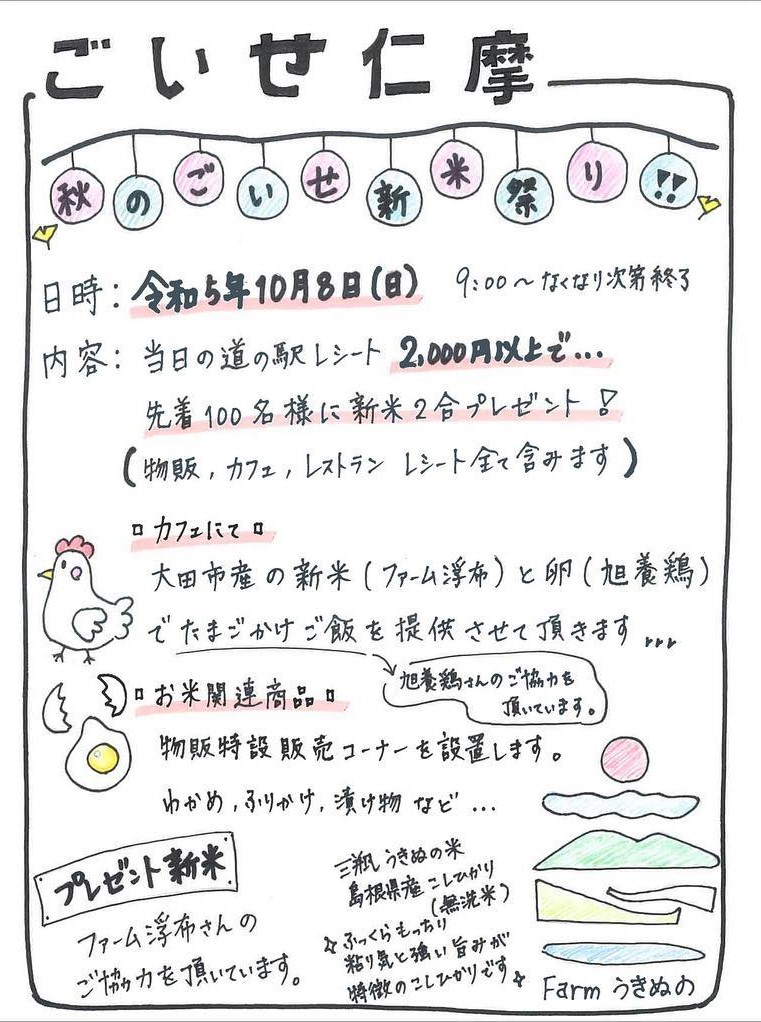 ごいせ仁摩
秋のごいせ新米祭り!!
日時：令和5年10月8日(日) 9:00～なくなり次第終了
内容：当日の道の駅レシート 2,000円以上で...
先着100名様に新米2合プレゼント！
(物販,カフェ,レストラン レシート全て含みます)
▫カフェにて▫
大田市産の新米(ファーム浮布)と卵(旭養鶏)
でたまごかけご飯を提供させて頂きます...
旭養鶏さんのご協力を
頂いています。
▫お米関連商品▫
物販特設販売コーナーを設置します。
わかめ,ふりかけ,漬け物 など...
プレゼント新米
ファーム浮布さんの
ご協力を頂いています。
三瓶うきぬの米
島根県産こしひかり
(無洗米)
☆ふっくらもっちり
粘り気と強い旨みが
特徴のこしひかりです☆
Farm うきぬの